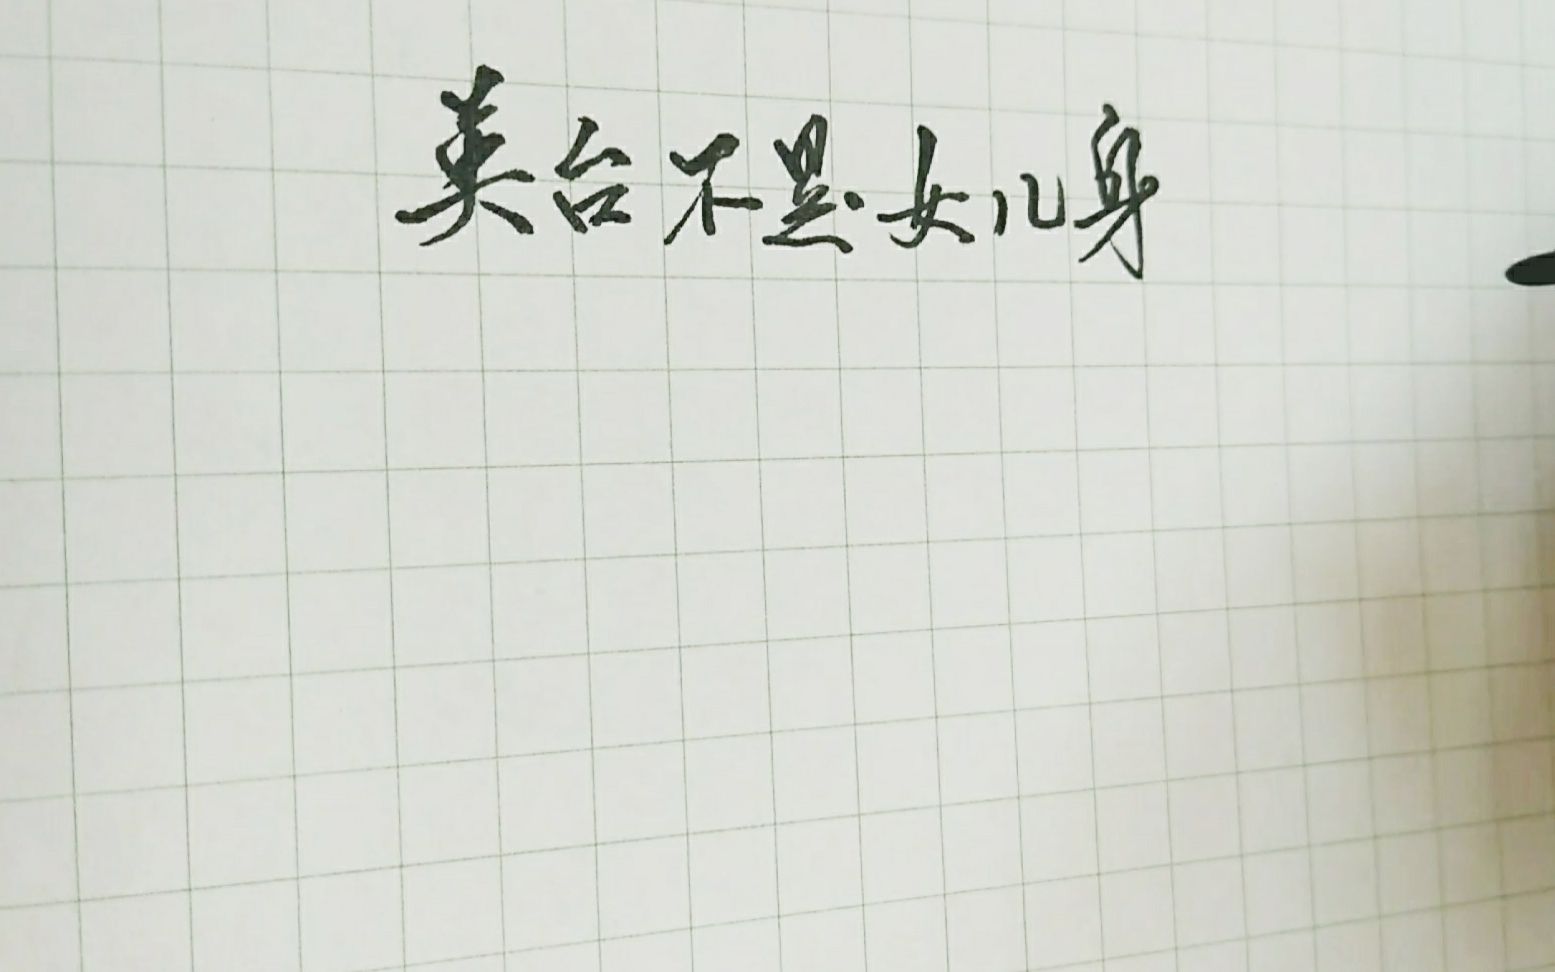 英台不是女儿身